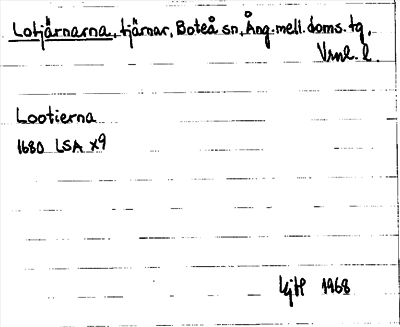 Lotjärnarna, tjärnar, Boteå sn, Ång. mell. doms. tg,
Vrml. l.
Lootierna
1680 LSA X9
1968